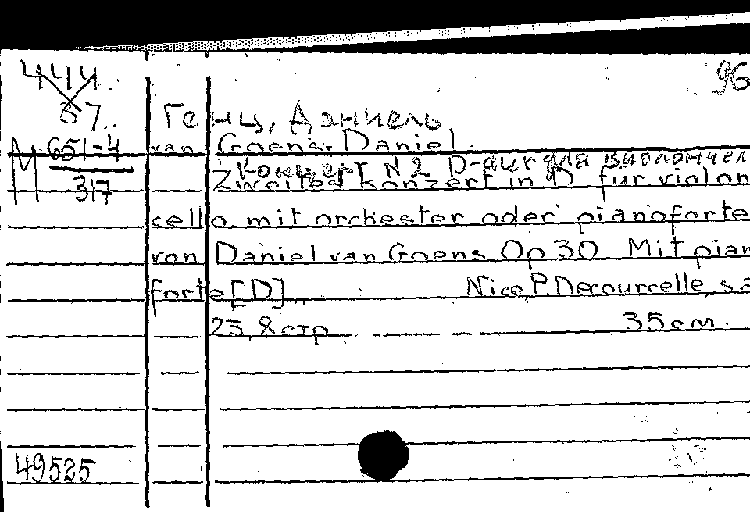 444 96
57 Генц, Даниель
М 651-4 van Goens, Daniel.
317 Концерт N2 D-dur для виолончел
Zweites konzert in D fur violon
cello mit orchester oder pianoforte
von Daniel van Goens Op 30 Mit pian
forte [D] Nico P. Decourcelle, s.a
23, 8 стр 35 cm.
49525